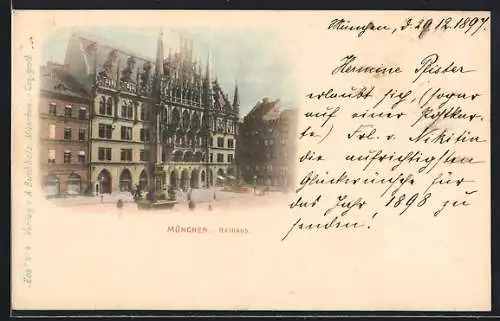 München, d. 29.12.1897.
Hermine Pfister
erlaubt sich, (sogar
auf einer Postkar-
te) Frl. v. Nikitin
die aufrichtigsten
Glückwünsche für
das Jahr 1898 zu
senden!
MÜNCHEN. RATHAUS.
Verlag v. A. Buchholz, München. Ges. gesch.